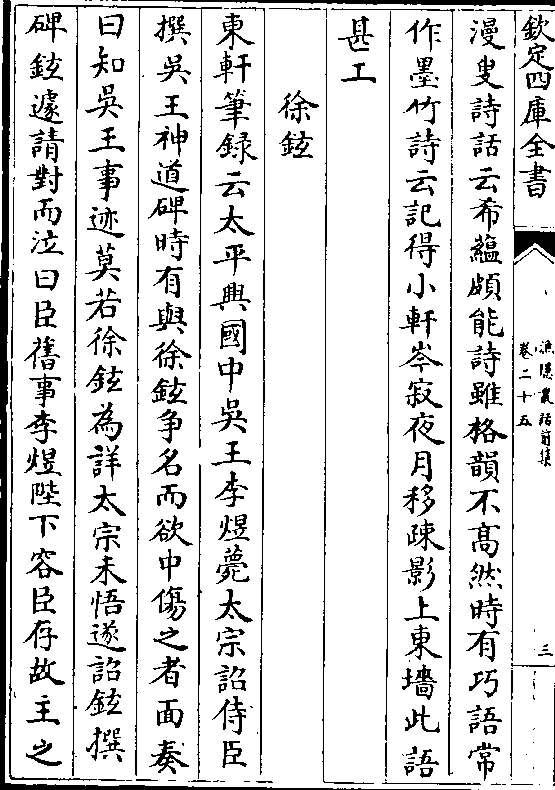 欽定四庫全書
漁隱叢話前集
卷二十五
三
漫叟詩話云希藴頗能詩雖格韻不髙然時有巧語常
作墨竹詩云記得小軒岑寂夜月移疎影上東墻此語
甚工
徐鉉
東軒筆録云太平興國中吳王李煜薨太宗詔侍臣
撰吳王神道碑時有與徐鉉争名而欲中傷之者面奏
曰知吳王事迹莫若徐鉉為詳太宗未悟遂詔鉉撰
碑鉉遽請對而泣曰臣舊事李煜陛下容臣存故主之